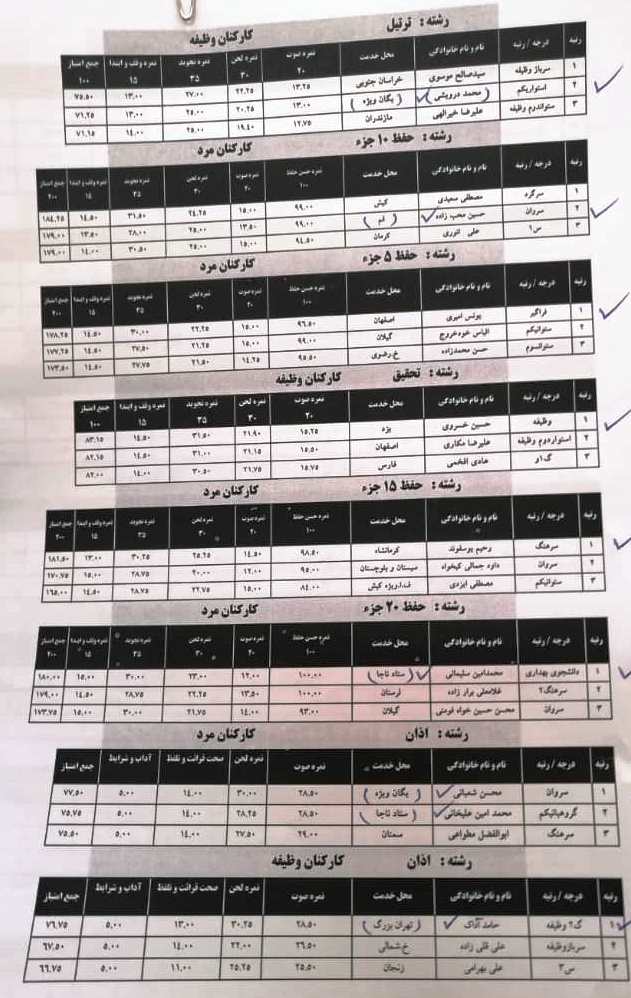 رشته : ترتیل کارکنان وظیفه
رتبه درجه / رتبه نام و نام خانوادگی محل خدمت نمره صوت ۲۰ نمره لحن ۳۰ نمره تجوید ۳۵ نمره وقف و ابتدا ۱۵ جمع امتیاز ۱۰۰
۱ سرباز وظیفه سیدصالح موسوی خراسان جنوبی ۱۳.۲۵ ۲۲.۲۵ ۲۷.۰۰ ۱۳.۰۰ ۷۵.۵۰
۲ استواریکم ( محمد درویشی ) ( یگان ویژه ) ۱۳.۰۰ ۲۰.۲۵ ۲۵.۰۰ ۱۳.۰۰ ۷۱.۲۵
۳ ستواندرم وظیفه علیرضا خیرالهی مازندران ۱۲.۷۵ ۱۹.۴۰ ۲۵.۰۰ ۱۴.۰۰ ۷۱.۱۵
رشته : حفظ ۱۰ جزء کارکنان مرد
رتبه درجه / رتبه نام و نام خانوادگی محل خدمت نمره حسن حفظ ۱۰۰ نمره صوت ۲۰ نمره لحن ۳۰ نمره تجوید ۳۵ نمره وقف و ابتدا ۱۵ جمع امتیاز ۲۰۰
۱ سرگرد مصطفی سعیدی کیش ۹۹.۰۰ ۱۵.۰۰ ۲۴.۲۵ ۳۱.۵۰ ۱۴.۵۰ ۱۸۴.۲۵
۲ سروان حسین محب زاده ( قم ) ۹۹.۰۰ ۱۳.۵۰ ۲۵.۰۰ ۲۸.۰۰ ۱۳.۵۰ ۱۷۹.۰۰
۳ س۱ علی انوری کرمان ۹۴.۵۰ ۱۵.۰۰ ۲۵.۰۰ ۳۰.۵۰ ۱۴.۰۰ ۱۷۹.۰۰
رشته : حفظ ۵ جزء کارکنان مرد
رتبه درجه / رتبه نام و نام خانوادگی محل خدمت نمره حسن حفظ ۱۰۰ نمره صوت ۲۰ نمره لحن ۳۰ نمره تجوید ۳۵ نمره وقف و ابتدا ۱۵ جمع امتیاز ۲۰۰
۱ فراگیر یونس امیری اصفهان ۹۶.۵۰ ۱۵.۰۰ ۲۲.۲۵ ۳۰.۰۰ ۱۴.۵۰ ۱۷۸.۲۵
۲ ستوانیکم الیاس خودخروج گیلان ۹۹.۰۰ ۱۵.۰۰ ۲۱.۲۵ ۲۷.۵۰ ۱۴.۵۰ ۱۷۷.۲۵
۳ ستوانسوم حسن محمدزاده خ.رضوی ۹۵.۵۰ ۱۴.۲۵ ۲۱.۵۰ ۲۷.۷۵ ۱۴.۵۰ ۱۷۳.۵۰
رشته : تحقیق کارکنان وظیفه
رتبه درجه / رتبه نام و نام خانوادگی محل خدمت نمره صوت ۲۰ نمره لحن ۳۰ نمره تجوید ۳۵ نمره وقف و ابتدا ۱۵ جمع امتیاز ۱۰۰
۱ وظیفه حسین خسروی یزد ۱۵.۲۵ ۲۱.۹۰ ۳۱.۵۰ ۱۴.۵۰ ۸۳.۱۵
۲ استواردوم وظیفه علیرضا مکاری اصفهان ۱۵.۵۰ ۲۱.۱۵ ۳۱.۰۰ ۱۴.۵۰ ۸۲.۱۵
۳ گ۱و هادی افخمی فارس ۱۵.۷۵ ۲۱.۷۵ ۳۰.۵۰ ۱۴.۰۰ ۸۲.۰۰
رشته : حفظ ۱۵ جزء کارکنان مرد
رتبه درجه / رتبه نام و نام خانوادگی محل خدمت نمره حسن حفظ ۱۰۰ نمره صوت ۲۰ نمره لحن ۳۰ نمره تجوید ۳۵ نمره وقف و ابتدا ۱۵ جمع امتیاز ۲۰۰
۱ سرهنگ رحیم یوسفوند کرمانشاه ۹۸.۵۰ ۱۴.۵۰ ۲۵.۲۵ ۳۰.۲۵ ۱۳.۰۰ ۱۸۱.۵۰
۲ سروان داود جمالی کیخواه سیستان و بلوچستان ۹۵.۰۰ ۱۲.۰۰ ۲۰.۰۰ ۲۸.۷۵ ۱۵.۰۰ ۱۷۰.۷۵
۳ ستوانیکم مصطفی ایزدی ف.ا.ویژه کیش ۸۴.۰۰ ۱۵.۰۰ ۲۲.۷۵ ۲۸.۷۵ ۱۴.۵۰ ۱۶۵.۰۰
رشته : حفظ ۲۰ جزء کارکنان مرد
رتبه درجه / رتبه نام و نام خانوادگی محل خدمت نمره حسن حفظ ۱۰۰ نمره صوت ۲۰ نمره لحن ۳۰ نمره تجوید ۳۵ نمره وقف و ابتدا ۱۵ جمع امتیاز ۲۰۰
۱ دانشجوی بهداری محمدامین سلیمانی ( ستاد ناجا ) ۱۰۰.۰۰ ۱۲.۰۰ ۲۳.۰۰ ۳۰.۰۰ ۱۵.۰۰ ۱۸۰.۰۰
۲ سرهنگ۲ غلامعلی برار زاده لرستان ۱۰۰.۰۰ ۱۳.۵۰ ۲۲.۲۵ ۲۸.۷۵ ۱۴.۵۰ ۱۷۹.۰۰
۳ سروان محسن حسین خواه فومنی گیلان ۹۳.۰۰ ۱۴.۰۰ ۲۱.۷۵ ۳۰.۰۰ ۱۵.۰۰ ۱۷۳.۷۵
رشته : اذان کارکنان مرد
رتبه درجه / رتبه نام و نام خانوادگی محل خدمت نمره صوت نمره لحن صحت قرائت و تلفظ آداب و شرایط جمع امتیاز
۱ سروان محسن شعبانی ( یگان ویژه ) ۲۸.۵۰ ۳۰.۰۰ ۱۴.۰۰ ۵.۰۰ ۷۷.۵۰
۲ گروهبانیکم محمد امین علیخانی ( ستاد ناجا ) ۲۸.۵۰ ۲۸.۲۵ ۱۴.۰۰ ۵.۰۰ ۷۵.۷۵
۳ سرهنگ ابوالفضل مطواعی سمنان ۲۹.۰۰ ۲۷.۵۰ ۱۴.۰۰ ۵.۰۰ ۷۵.۵۰
رشته : اذان کارکنان وظیفه
رتبه درجه / رتبه نام و نام خانوادگی محل خدمت نمره صوت نمره لحن صحت قرائت و تلفظ آداب و شرایط جمع امتیاز
۱ گ۲ وظیفه حامد آذاک ( تهران بزرگ ) ۲۸.۵۰ ۳۰.۲۵ ۱۳.۰۰ ۵.۰۰ ۷۶.۷۵
۲ سربازوظیفه علی قلی زاده خ.شمالی ۲۶.۵۰ ۲۲.۰۰ ۱۴.۰۰ ۵.۰۰ ۶۷.۵۰
۳ س۳ علی بهرامی زنجان ۲۵.۵۰ ۲۵.۲۵ ۱۱.۰۰ ۵.۰۰ ۶۶.۷۵